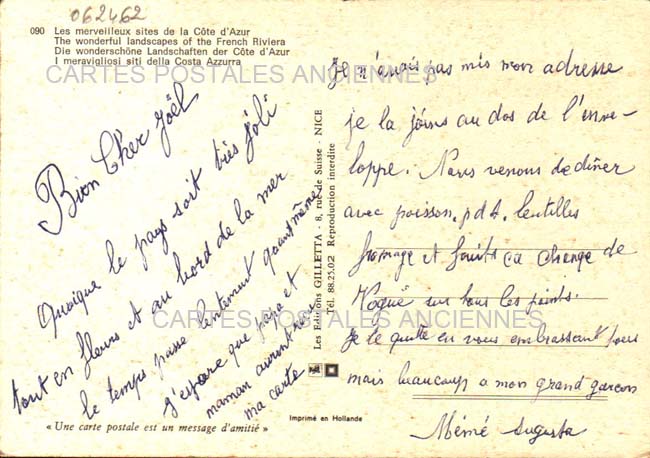 062462
090 Les merveilleux sites de la Côte d'Azur
The wonderful landscapes of the French Riviera
Die wonderschöne Landschaften der Côte d'Azur
I meravigliosi siti della Costa Azzurra
CARTES POSTALES ANCIENNES
Bien Cher Joël
Quoique le pays soit très joli
tout en fleurs et au bord de la mer
le temps passe lentement quant même
j'espère que papa et
maman auront reçu
ma carte
« Une carte postale est un message d'amitié »
Les Editions GILLETTA - 8, rue de Suisse - NICE
Tél. 88.25.02 Reproduction interdite
Imprimé en Hollande
Je n'avais pas mis mon adresse
je la joins au dos de l'enve-
loppe. Nous venons de diner
avec poisson, pdt, lentilles
fromage et fruits ca change de
sur tous les points.
CARTES POSTALES ANCIENNES
Je te quitte en vous embrassant tous
mais beaucoup a mon grand garçon
Mémé Augusta